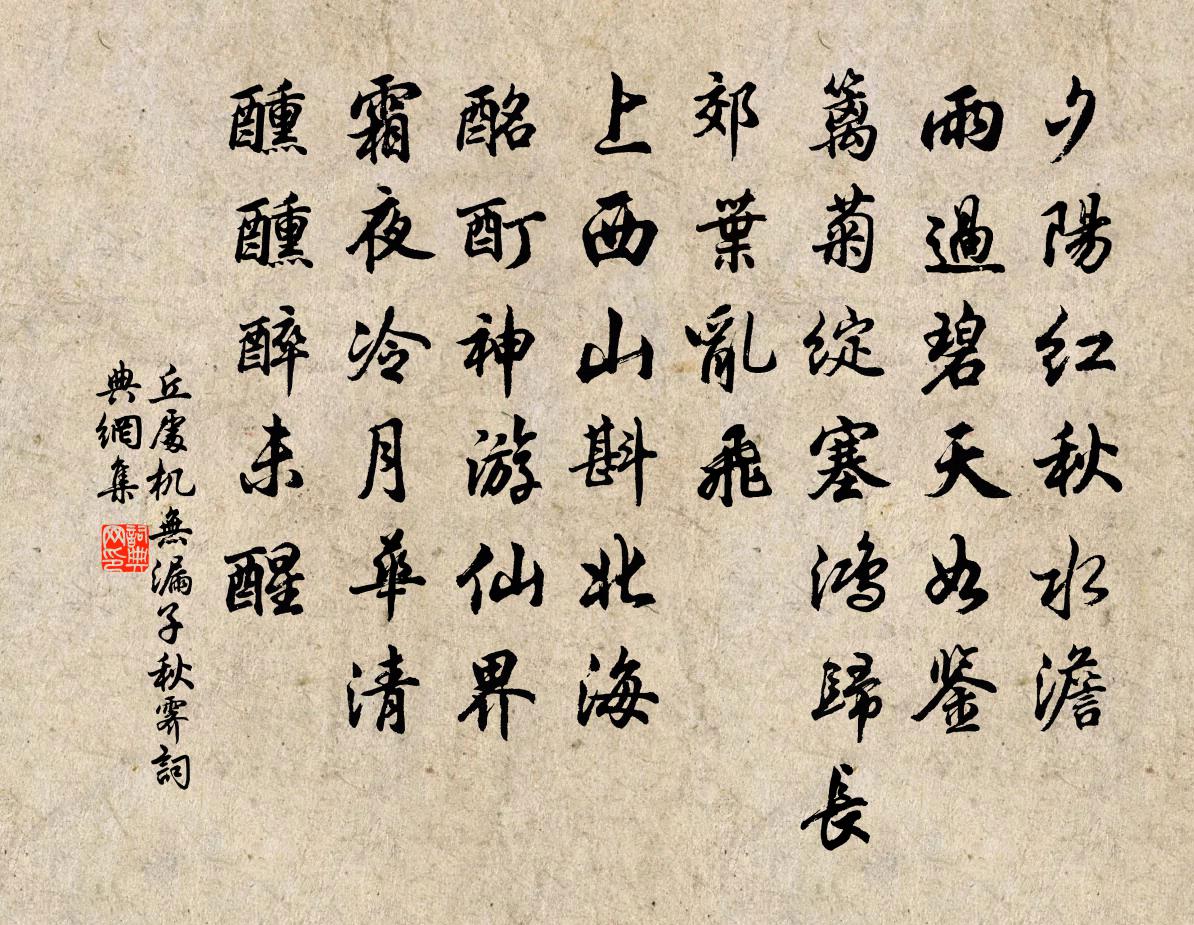 夕陽红秋水澹
雨過碧天如鉴
篱菊綻塞鸿歸長
郊葉亂飛
上西山斟北海
酩酊神游仙界
霜夜冷月華清
醺醺醉未醒
丘處机無漏子秋霽詞
典網集
詞典网印